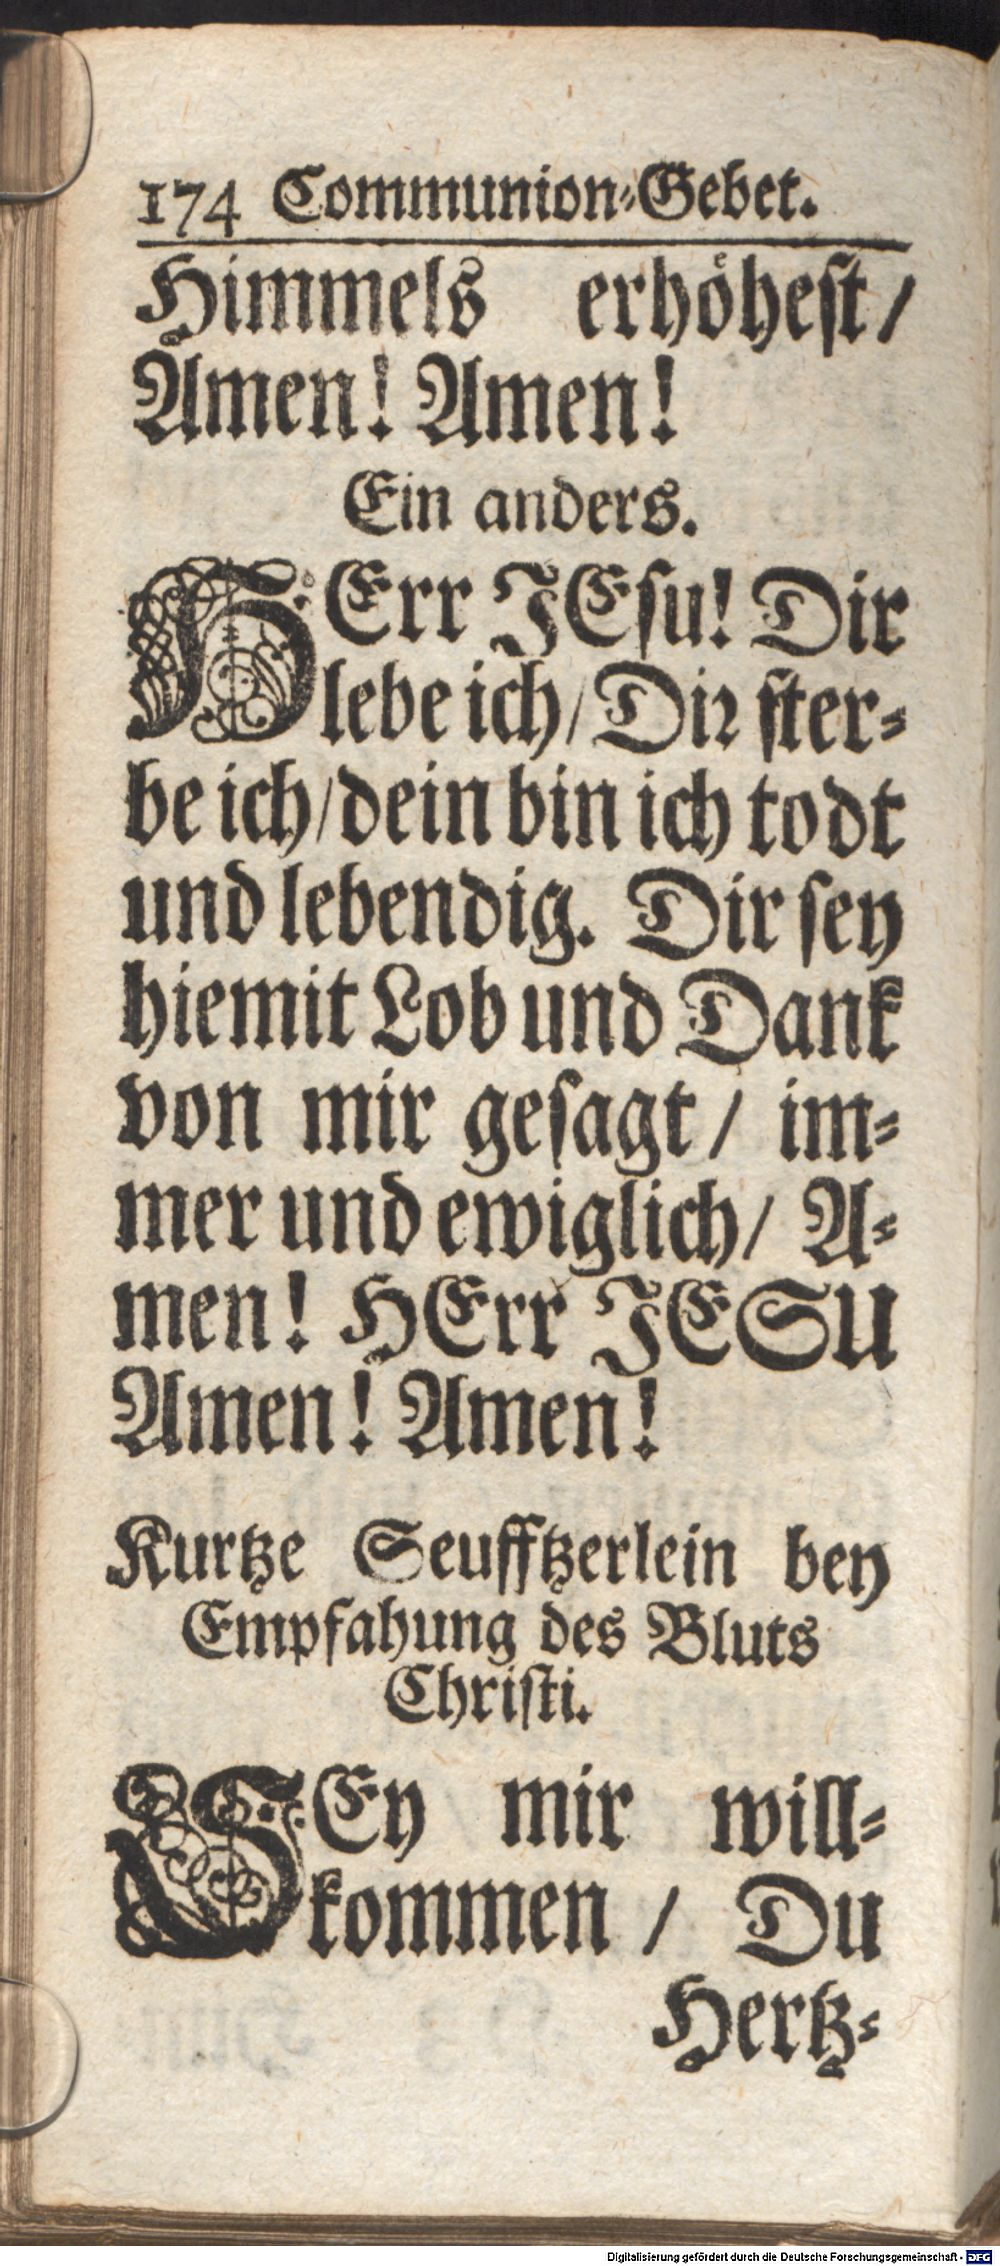 174 Communion-Gebet.
Himmels erhöhest /
Amen! Amen!
Ein anders.
HErr JEsu! Dir
lebe ich / Dir ster-
be ich / dein bin ich todt
und lebendig. Dir sey
hiemit Lob und Dank
von mir gesagt / im-
mer und ewiglich / A-
men! HErr JESU
Amen! Amen!
Kurtze Seufftzerlein bey
Empfahung des Bluts
Christi.
SEy mir will-
kommen / Du
Hertz-
Digitalisierung gefördert durch die Deutsche Forschungsgemeinschaft - DFG